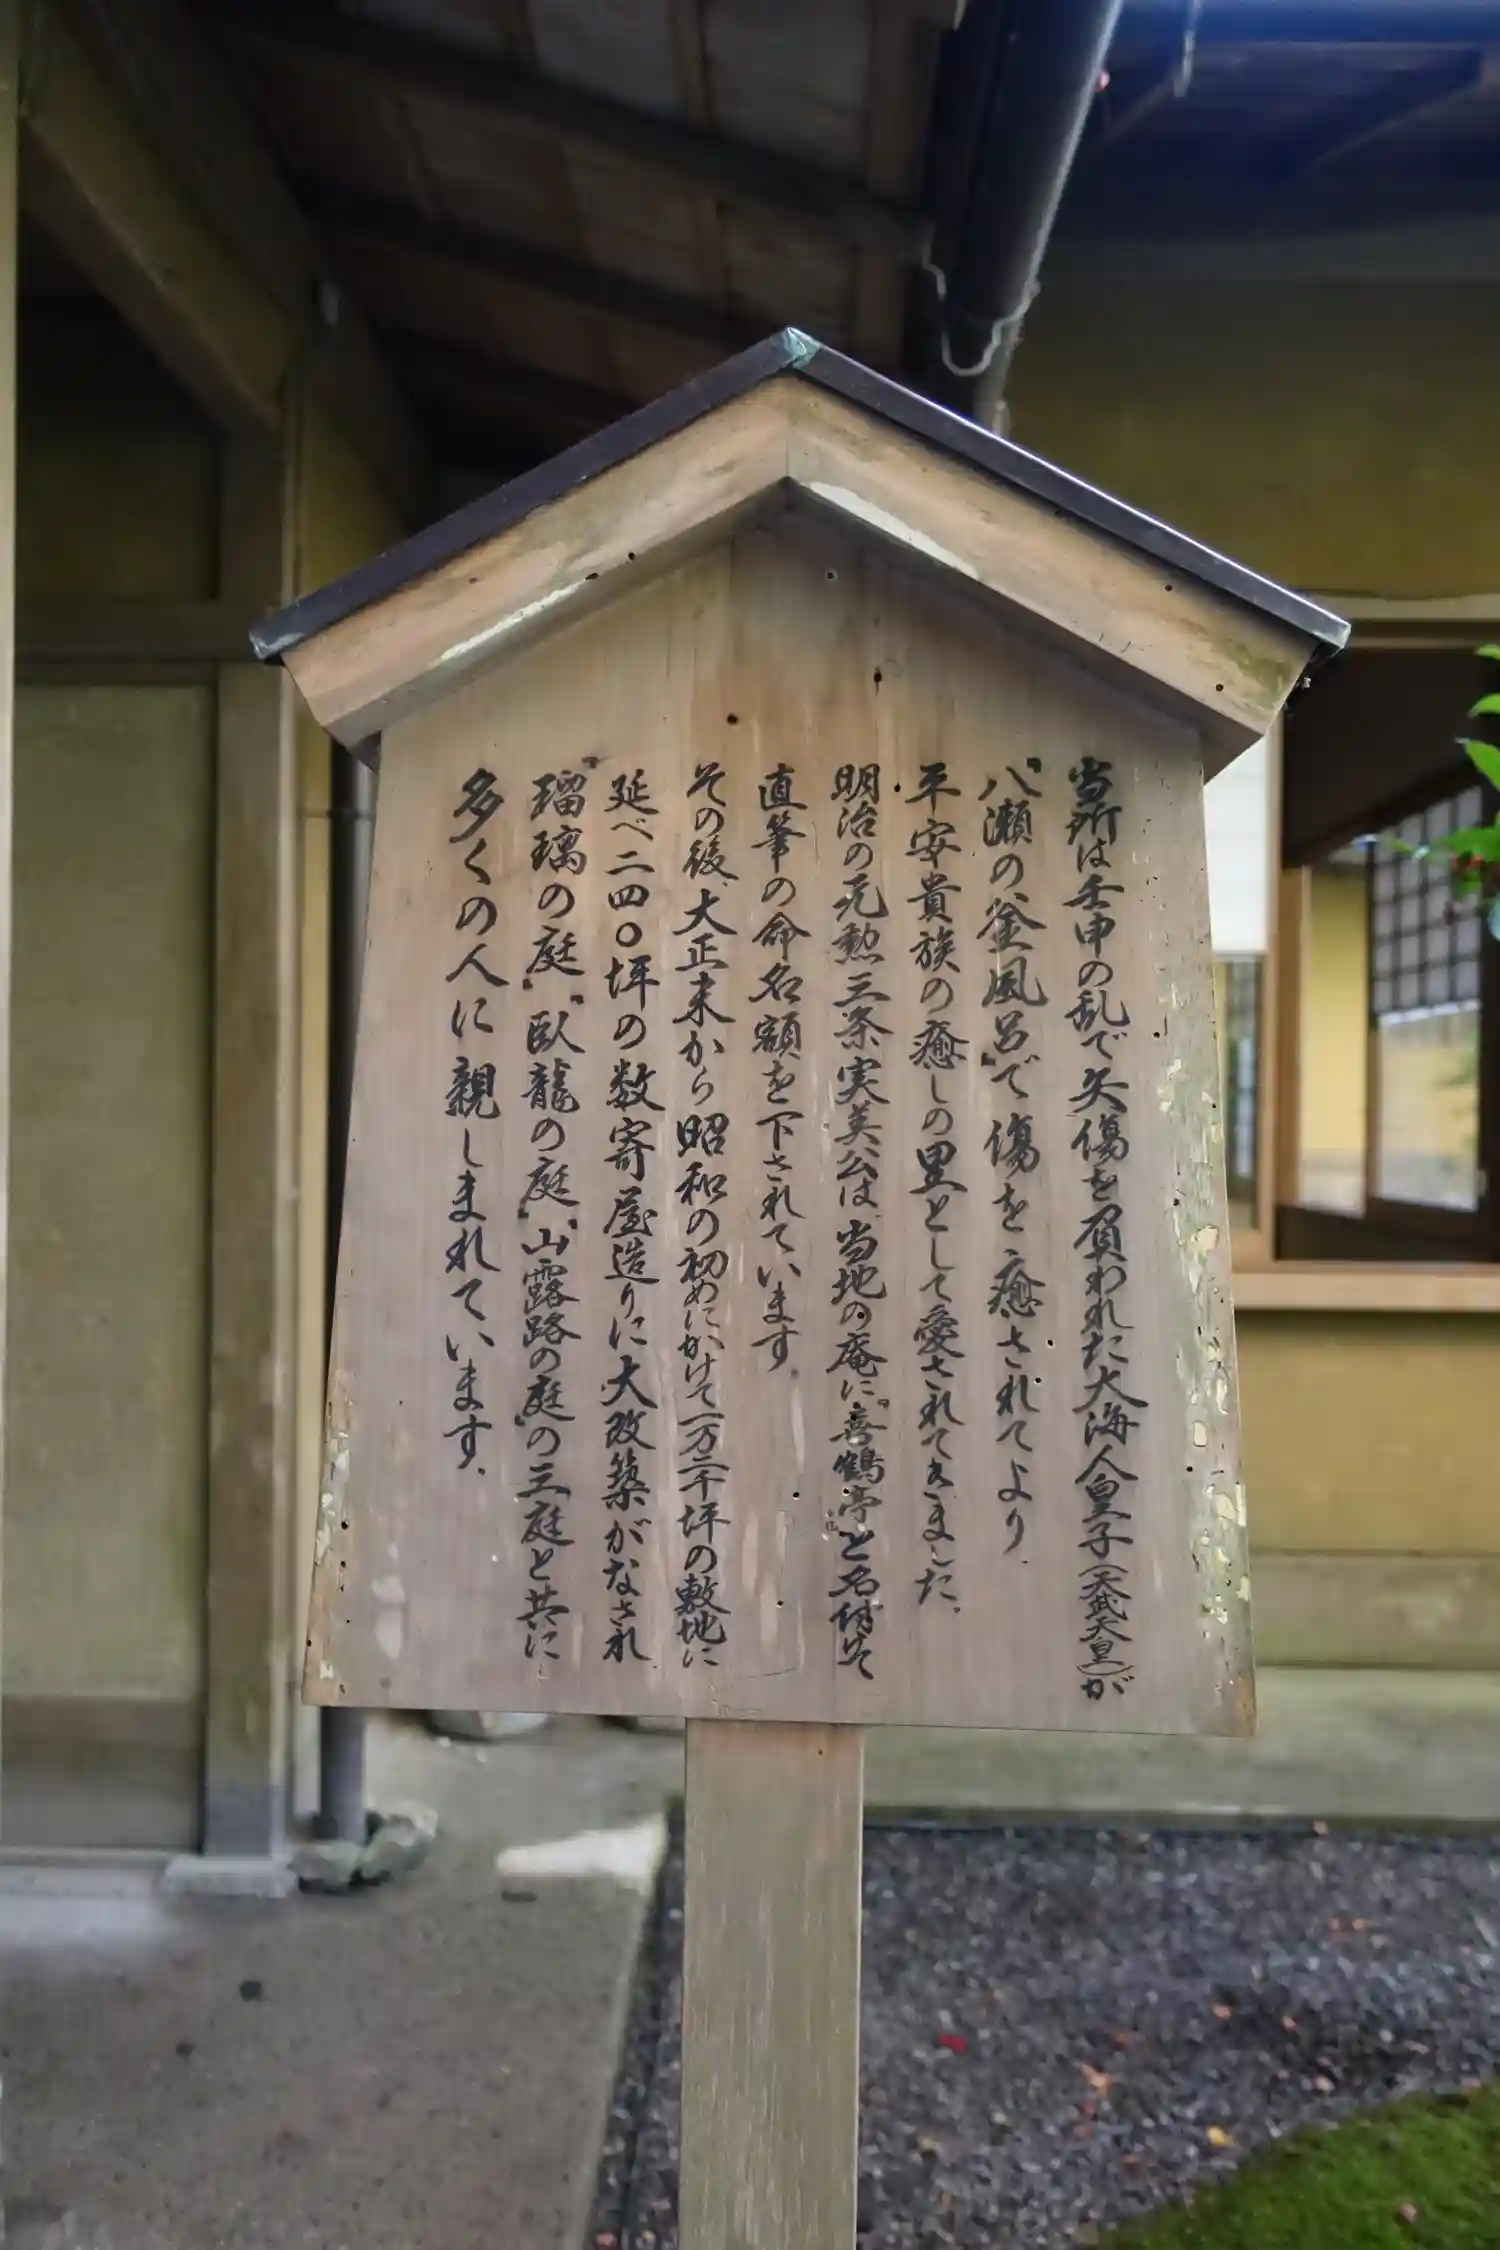 当所は壬申の乱で矢傷を負われた大海人皇子(天武天皇)が
『八瀬の釜風呂』で傷を癒されてより
平安貴族の癒しの里として愛されてきました。
明治の元勲三条実美公は、当地の庵に『喜鶴亭』と名付けて
直筆の命名額を下されています。
その後、大正末から昭和の初めにかけて一万二千坪の敷地に
延べ二四〇坪の数寄屋造りに大改築がなされ
『瑠璃の庭』『臥龍の庭』『山露路の庭』の三庭と共に
多くの人に親しまれています。